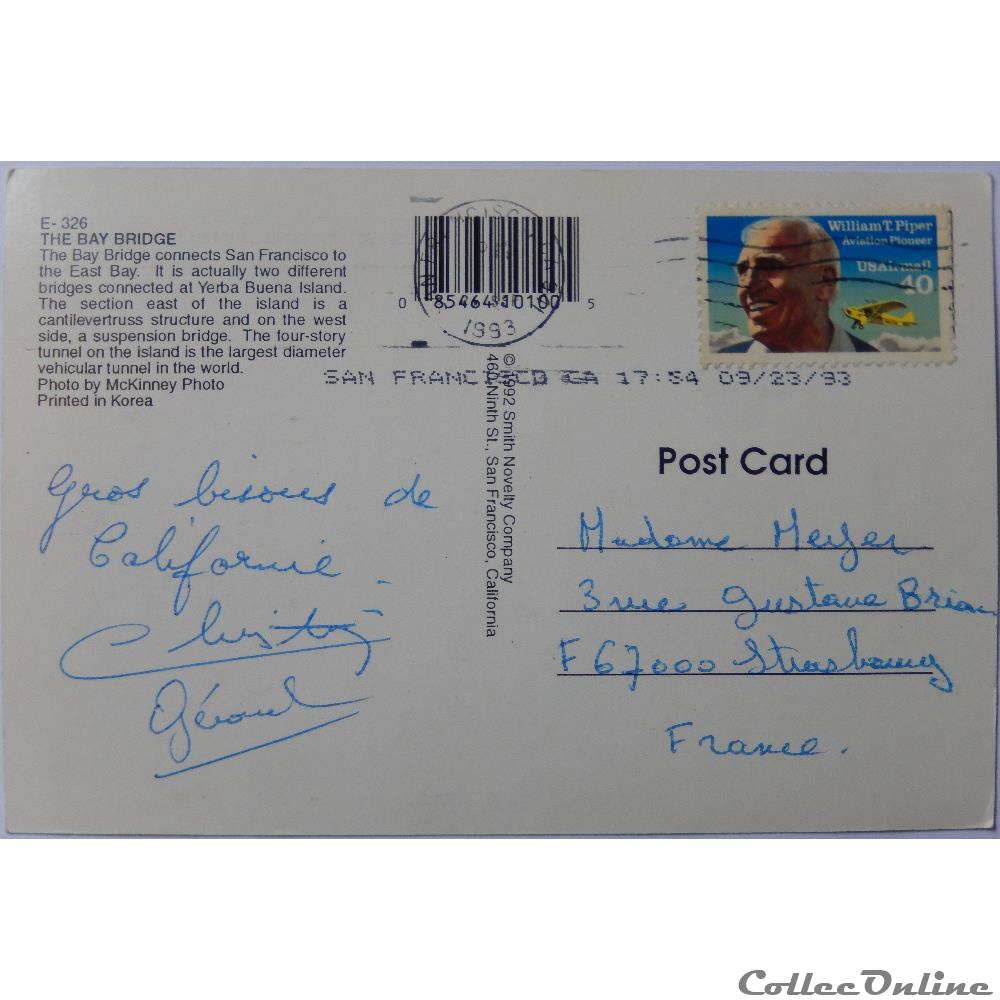 E- 326
THE BAY BRIDGE
The Bay Bridge connects San Francisco to
the East Bay. It is actually two different
bridges connected at Yerba Buena Island.
The section east of the island is a
cantilevertruss structure and on the west
side, a suspension bridge. The four-story
tunnel on the island is the largest diameter
vehicular tunnel in the world.
Photo by McKinney Photo
Printed in Korea
0 85464 10100 5
1993
William T. Piper
Aviation Pioneer
USAirmail
40
SAN FRANCISCO CA 17:54 09/23/93
© 1992 Smith Novelty Company
460 Ninth St., San Francisco, California
Gros bisous de
Californie
Gérard
Post Card
Madame Meyer
3 rue Gustave Brion
F 67000 Strasbourg
France.
CollecOnline